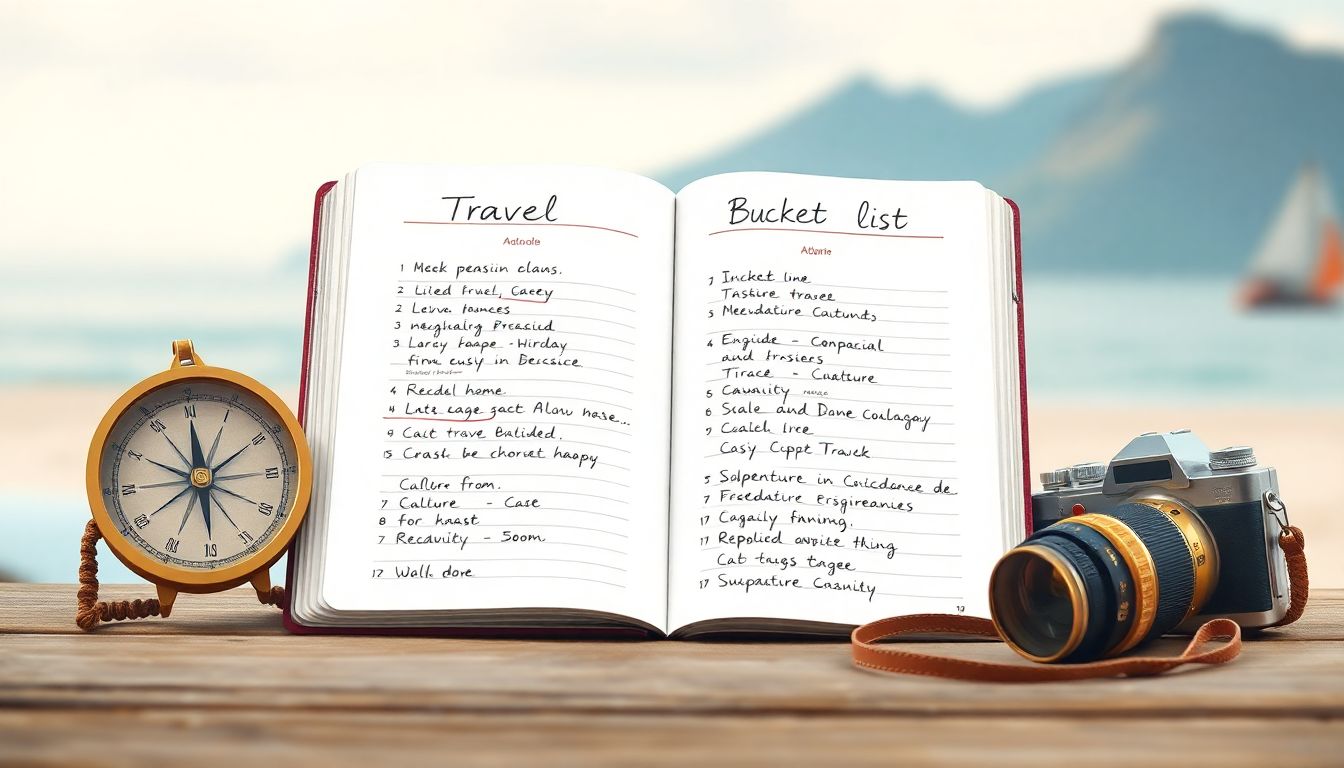 Travel
Adotofe
1 Meek pensiin clans.
2 Liled Fruel, Caeey
2 Leive toances
3 neighalrg Preasiid
3. Larcy faape - Wirday
firw eusy in Becsice
4 Recdel home.
4 Lats eage gact Alow hase...
9 Cact trave Balided.
15 Crash be choriet happy
Callre from.
7 Calture - Case
8 for hnast
7 Recavuity - Soom
17 Wall dore
Bucket list
7 Incket line
Tastire travee
5 Meevdature Cautunds
4 Engide - Conpacial
and frasiers
Tirace - Cuature
5 Cavusity
6 Scale and Dane Coalagay
9 Coalch Iree
Casy Cppt Travek
5 Solpenture in Coticdance de
7 Freedative ersgireanies
17 Cagaily fnining.
17 Repolied anvite thing
Cat taugs tagee
17 Suapacture Casnity